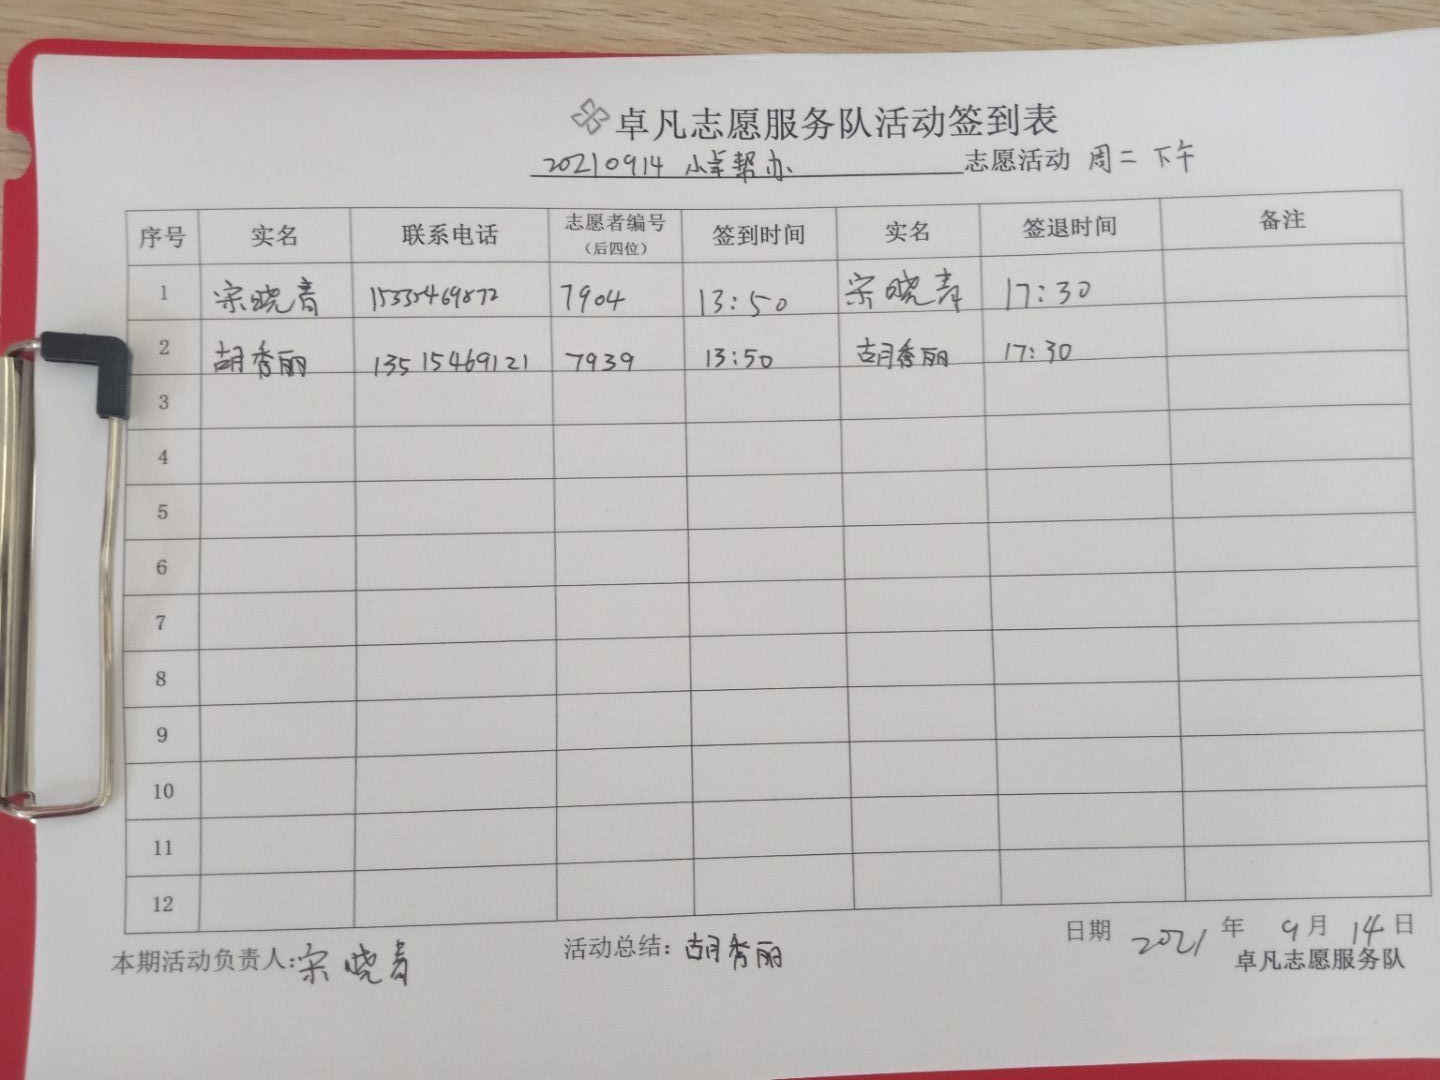 卓凡志愿服务队活动签到表
20210914 小卓帮办 志愿活动 周二下午
序号 实名 联系电话 志愿者编号 (后四位) 签到时间 实名 签退时间 备注
1 宋晓青 15335469872 7904 13:50 宋晓青 17:30
2 胡秀丽 13515469121 7939 13:50 胡秀丽 17:30
3
4
5
6
7
8
9
10
11
12
本期活动负责人:宋晓青 活动总结:胡秀丽 日期 2021年 9月 14日
卓凡志愿服务队